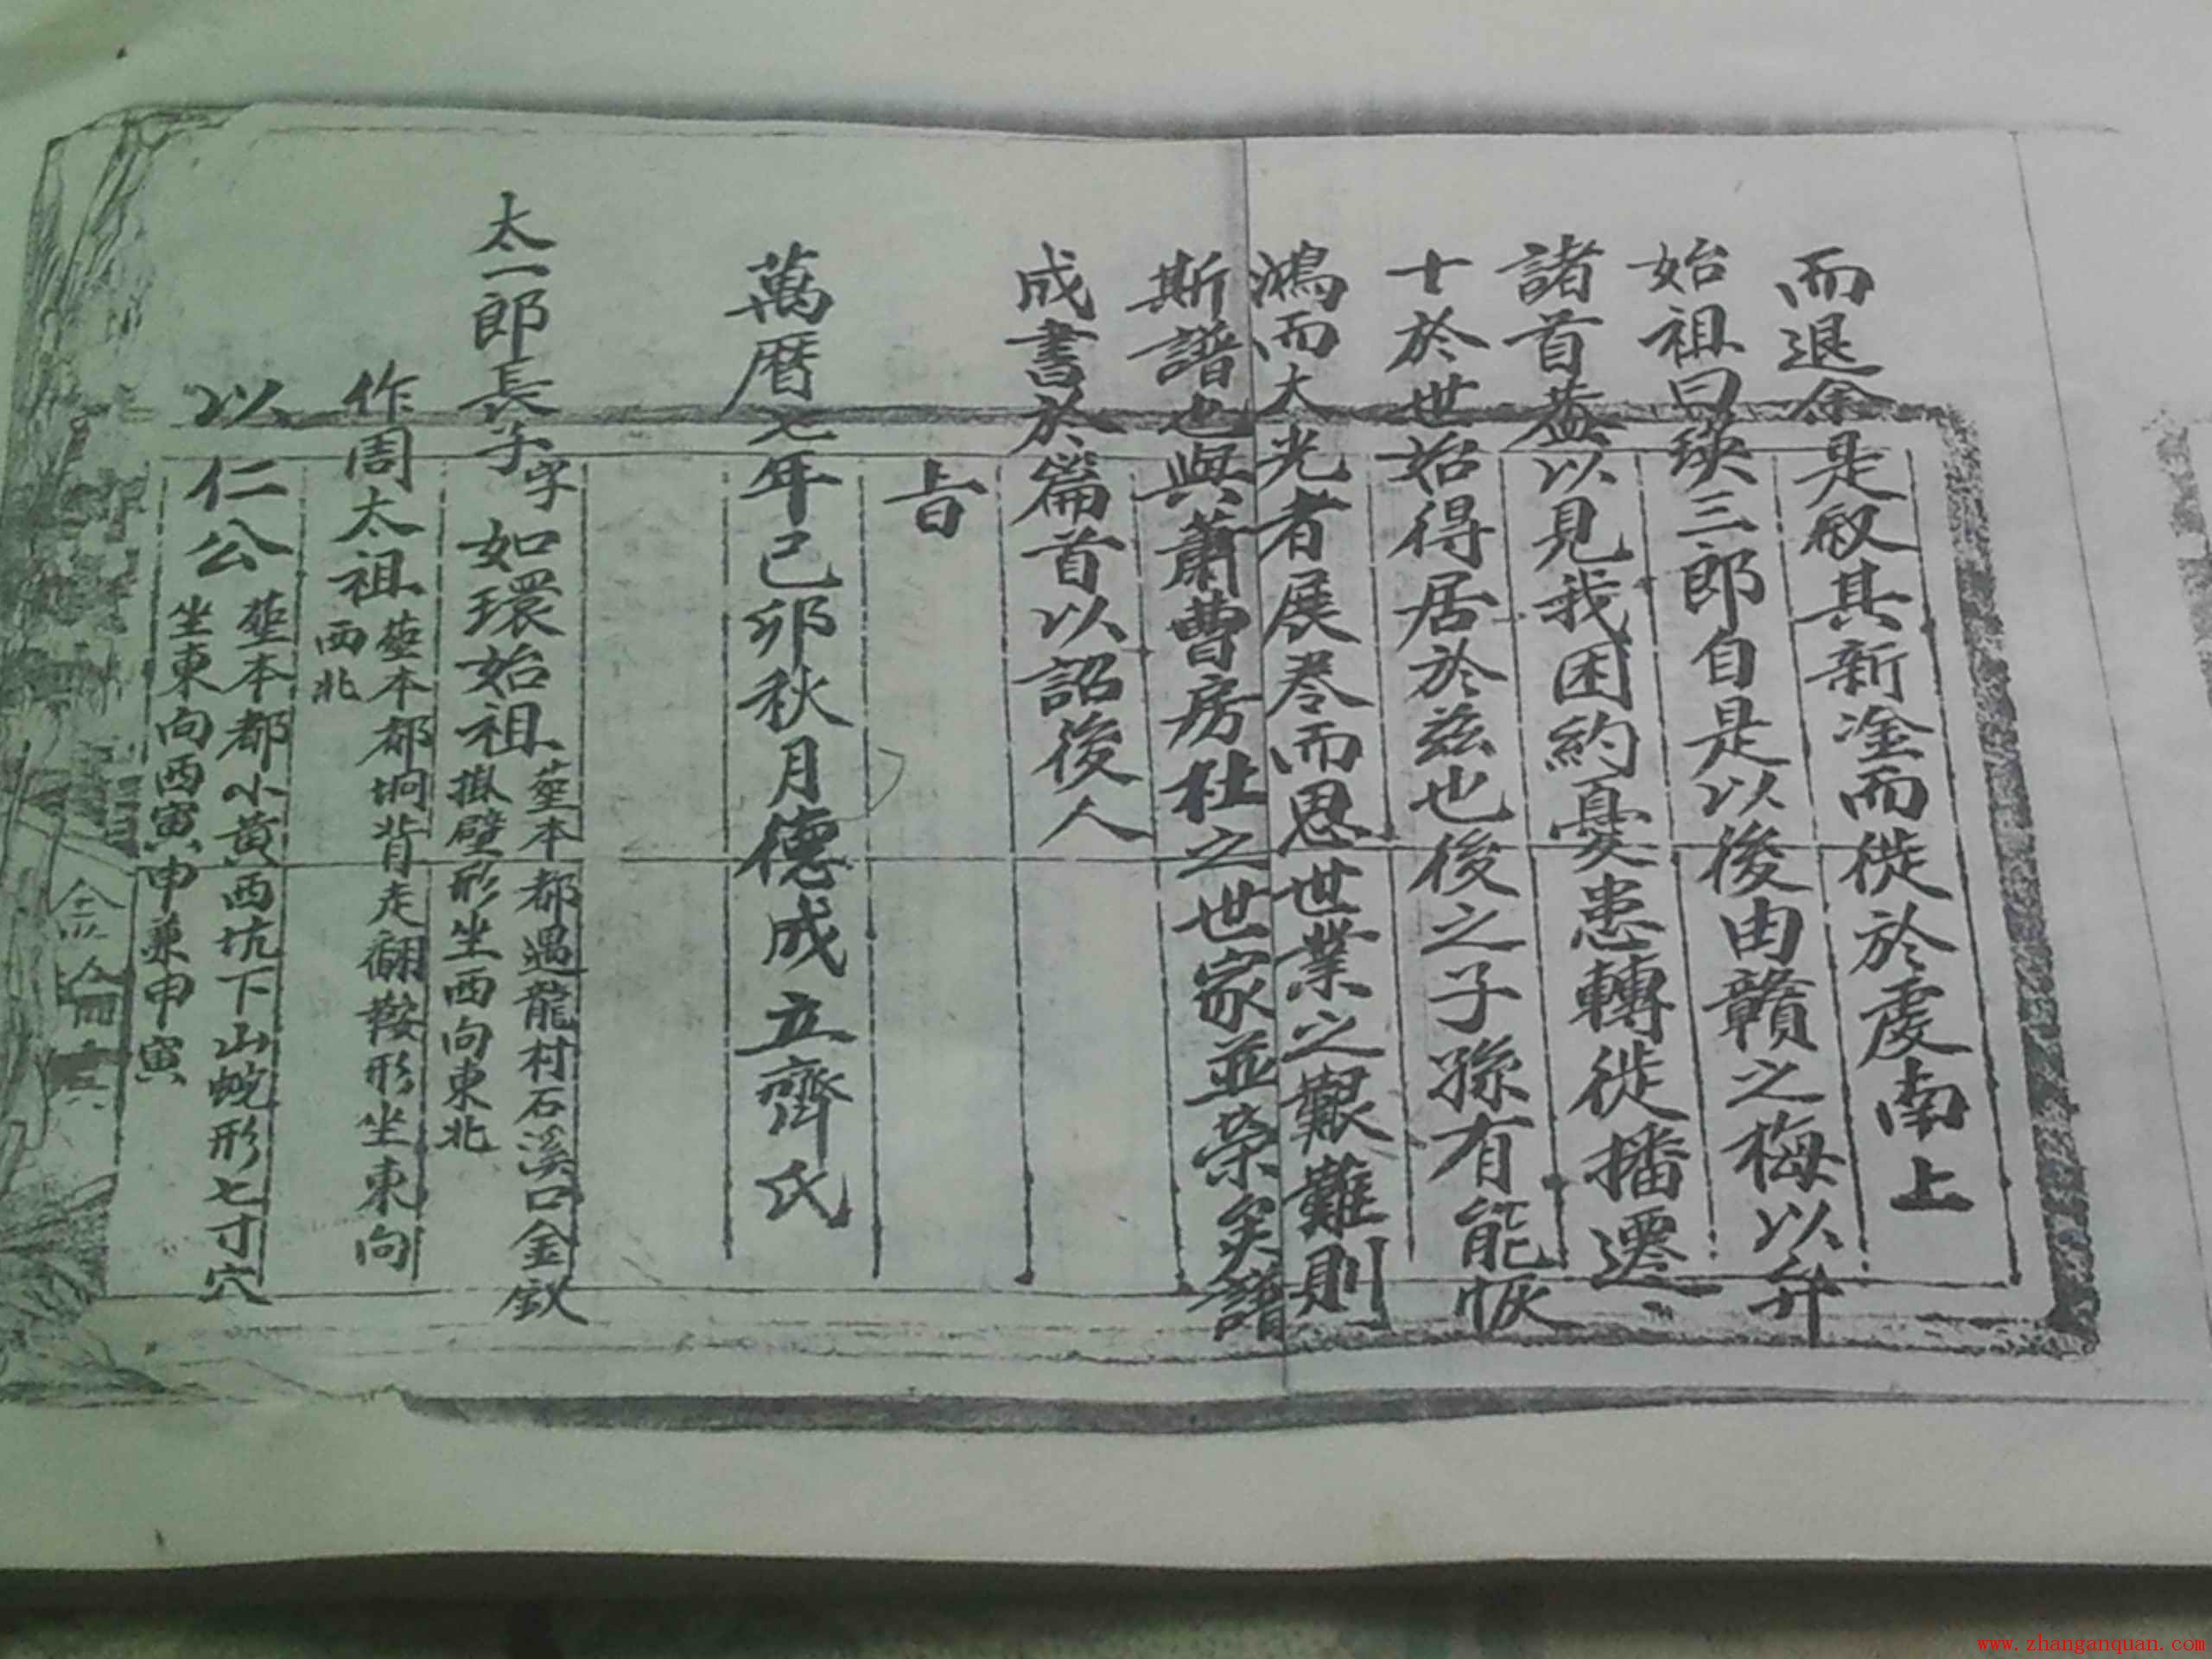 而退余是敘其新淦而徙於虔南上
始祖曰瑛三郎自是以後由贛之梅以升
諸首葢以見我困約憂患轉徙播遷
十於世始得居於兹也後之子孫有能恢
鴻而大光者展卷而思世業之艱難則
斯譜也與蕭曹房杜之世家並榮矣譜
成書於篇首以詔後人
旹
萬曆七年己卯秋月德成立齊氏
太一郎長子字如環始祖
葬本都遇龍村石溪口金釵
掛壁形坐西向東北
作周太祖
葬本都垧背走翻鞍形坐東向
西北
以仁公
葬本都小黃西坑下山蛻形七寸穴
坐東向西寅申兼申寅
www.zhanganquan.com